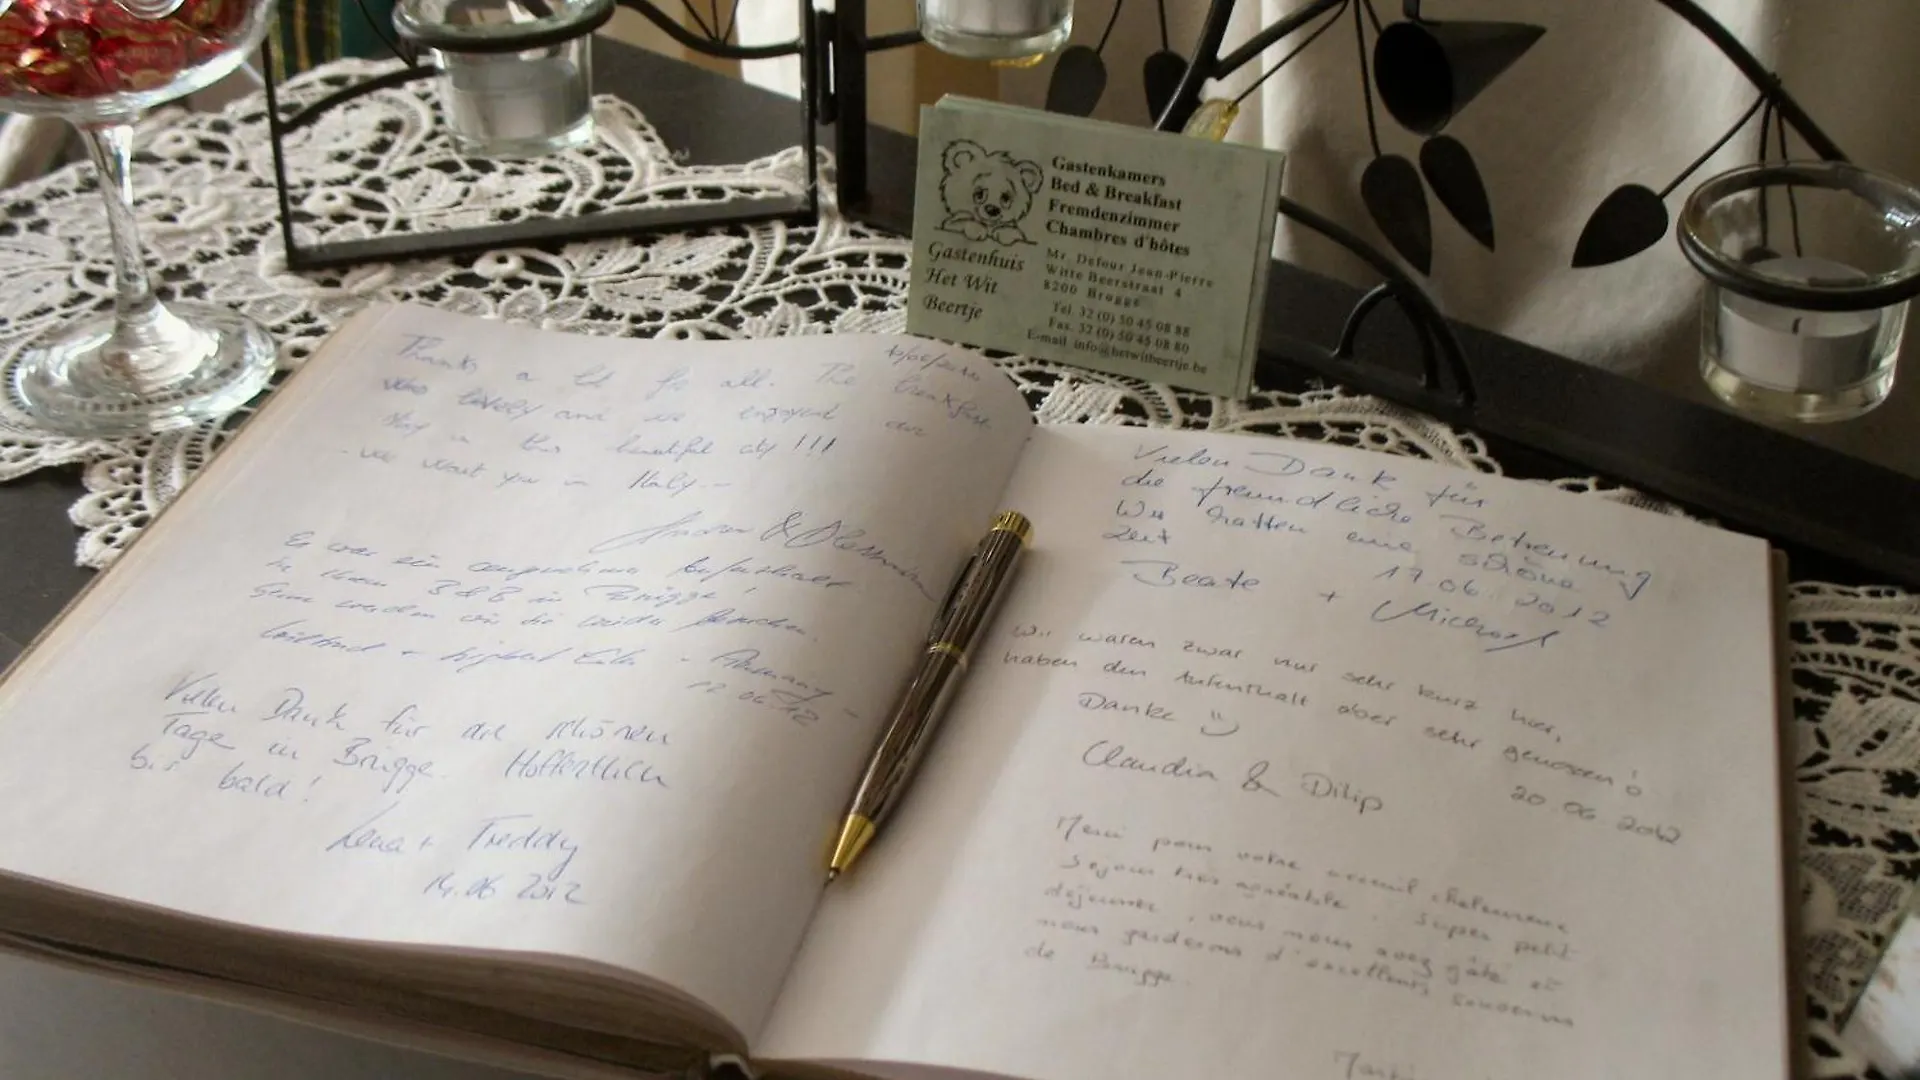 Gastenkamers
Bed & Breakfast
Fremdenzimmer
Chambres d'hôtes
Gastenhuis
Het Wit
Beertje
Mr. Defour Jean-Pierre
Witte Beerstraat 4
8200 Brugge
Tel. 32 (0) 50 45 08 88
Fax. 32 (0) 50 45 08 80
E-mail info@hetwitbeertje.be
Thanks a lot for all. The breakfast
was lovely and we enjoyed our
stay in this beautiful city !!!
we wait you in Italy
Es war ein angenehmer Aufenthalt
in Ihrem B&B in Brügge,
Gern werden wir Sie wieder besuchen.
12.06.12
Vielen Dank für die schönen
Tage in Brügge. Hoffentlich
bis bald!
Lena + Freddy
14.06 2012
Vielen Dank für
die freundliche Betreuung
Wir hatten eine schöne
Zeit 17.06.2012
Beate + Michael
Wir waren zwar nur sehr kurz hier,
haben den Aufenthalt aber sehr genossen!
Danke
Claudia & Dilip
20.06 2012
Merci pour votre accueil chaleureux
Séjour très agréable. Super petit
déjeuner, vous nous avez gâté et
nous garderons d'excellents souvenirs
de Brugge.